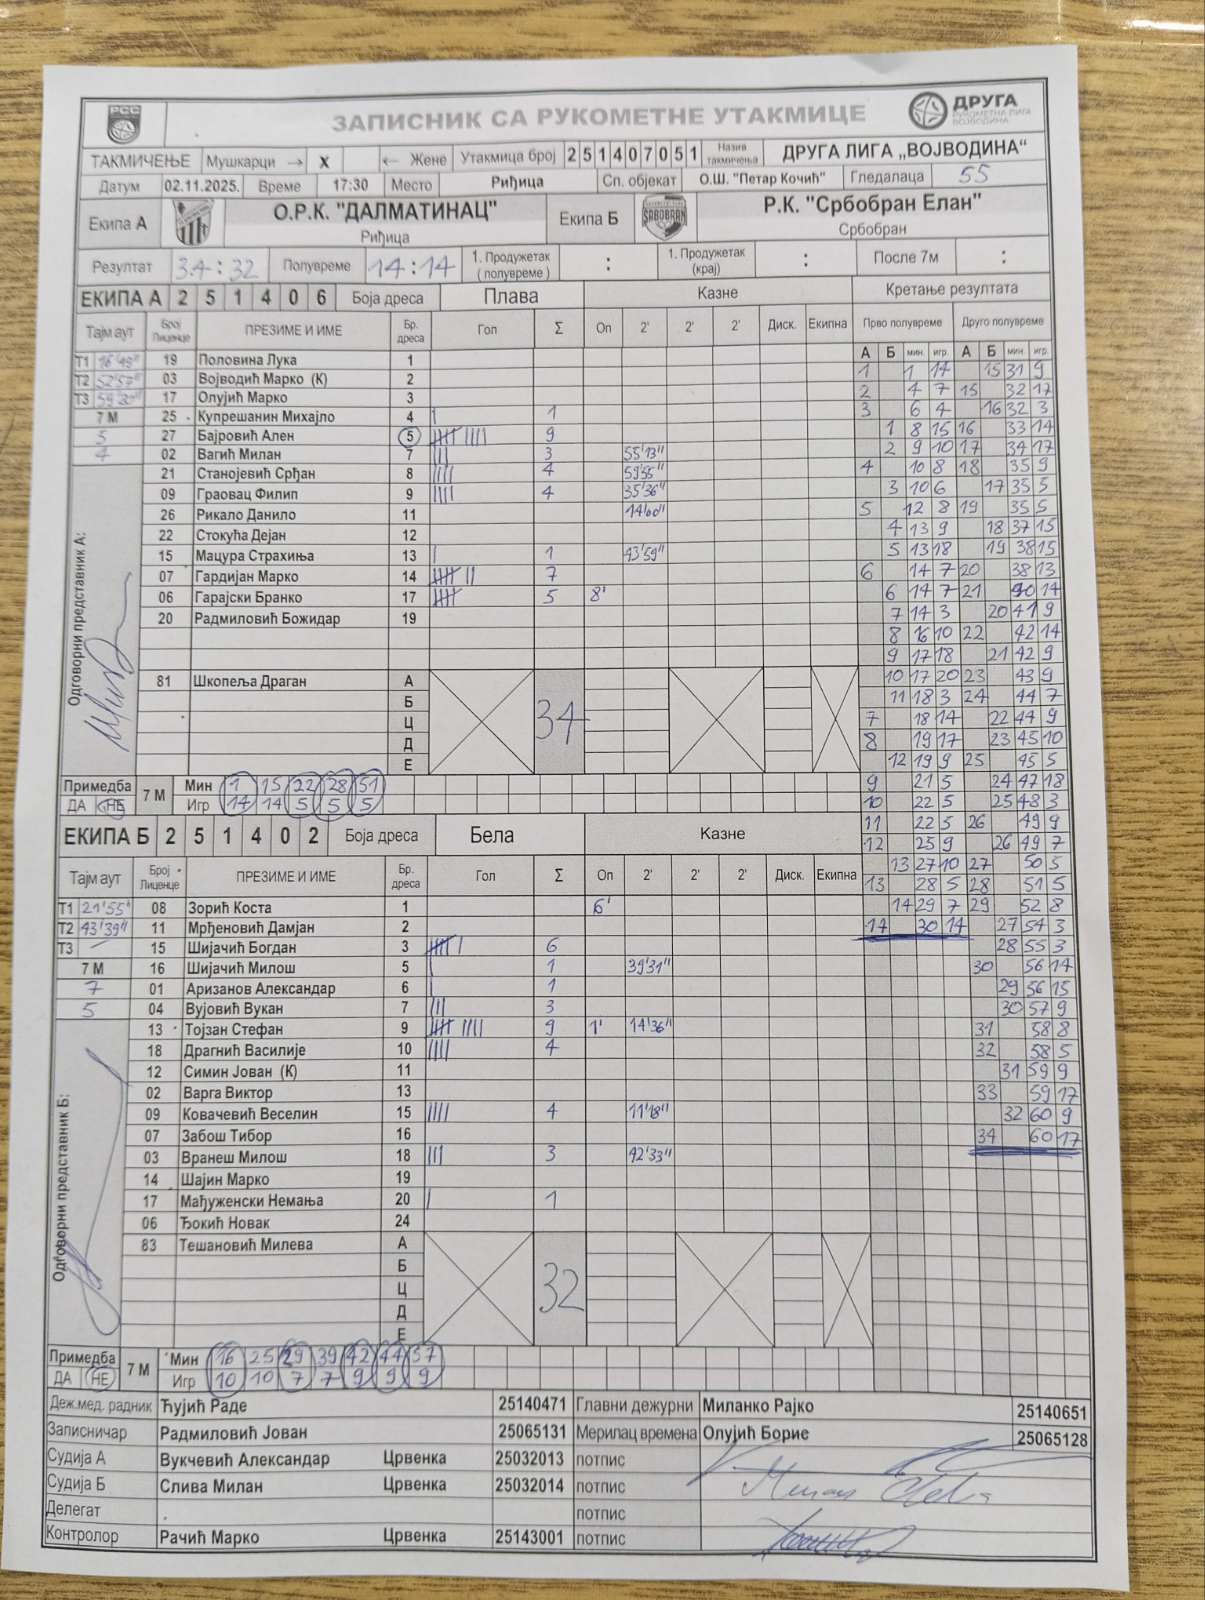 РСС
ЗАПИСНИК СА РУКОМЕТНЕ УТАКМИЦЕ
ДРУГА
РУКОМЕТНА ЛИГА
ВОЈВОДИНА
ТАКМИЧЕЊЕ Мушкарци → x ← Жене Утакмица број 2 5 1 4 0 7 0 5 1 Назив такмичења ДРУГА ЛИГА „ВОЈВОДИНА“
Датум 02.11.2025. Време 17:30 Место Риђица Сп. објекат О.Ш. "Петар Кочић" Гледалаца 55
Екипа А О.Р.К. "ДАЛМАТИНАЦ" Екипа Б СРБОБРАН Р.К. "Србобран Елан"
Риђица Србобран
Резултат 34:32 Полувреме 14:14 1. Продужетак (полувреме) : 1. Продужетак (крај) : После 7м :
ЕКИПА А 2 5 1 4 0 6 Боја дреса Плава Казне Кретање резултата
Тајм аут Број Лиценце ПРЕЗИМЕ И ИМЕ Бр. дреса Гол Σ Оп 2' 2' 2' Диск. Екипна Прво полувреме Друго полувреме
А Б мин. игр. А Б мин. игр.
Т1 16'49" 19 Половина Лука 1
Т2 52'57" 03 Војводић Марко (К) 2
Т3 59'20" 17 Олујић Марко 3
7 М 25 Купрешанин Михајло 4 | 1
5 27 Бајровић Ален 5 |||| |||| 9
4 02 Вагић Милан 7 ||| 3 55'13"
21 Станојевић Срђан 8 |||| 4 59'55"
09 Граовац Филип 9 |||| 4 35'36"
26 Рикало Данило 11 14'60"
22 Стокућа Дејан 12
15 Мацура Страхиња 13 | 1 43'59"
07 Гардијан Марко 14 |||| || 7
06 Гарајски Бранко 17 |||| 5 8'
20 Радмиловић Божидар 19
Одговорни представник А:
81 Шкопеља Драган А
Б
Ц 34
Д
Е
Примедба 7 М Мин 1 15 22 28 51
ДА НЕ Игр 14 14 5 5 5
1 1 14 15 31 9
2 4 7 15 32 17
3 6 4 16 32 3
1 8 15 16 33 14
2 9 10 17 34 17
4 10 8 18 35 9
3 10 6 17 35 5
5 12 8 19 35 5
4 13 9 18 37 15
5 13 18 19 38 15
6 14 7 20 38 13
6 14 7 21 40 14
7 14 3 20 41 9
8 16 10 22 42 14
9 17 18 21 42 9
10 17 20 23 43 9
11 18 3 24 44 7
7 18 14 22 44 9
8 19 17 23 45 10
12 19 9 25 45 5
9 21 5 24 47 18
10 22 5 25 48 3
11 22 5 26 49 9
12 25 9 26 49 7
13 27 10 27 50 5
13 28 5 28 51 5
14 29 7 29 52 8
14 30 14 27 54 3
28 55 3
30 56 14
29 56 15
30 57 9
31 58 8
32 58 5
31 59 9
33 59 17
32 60 9
34 60 17
ЕКИПА Б 2 5 1 4 0 2 Боја дреса Бела Казне
Тајм аут Број Лиценце ПРЕЗИМЕ И ИМЕ Бр. дреса Гол Σ Оп 2' 2' 2' Диск. Екипна
Т1 21'55" 08 Зорић Коста 1 6'
Т2 43'39" 11 Мрђеновић Дамјан 2
Т3 — 15 Шијачић Богдан 3 |||| | 6
7 М 16 Шијачић Милош 5 | 1 39'31"
7 01 Аризанов Александар 6 | 1
5 04 Вујовић Вукан 7 ||| 3
13 Тојзан Стефан 9 |||| |||| 9 1' 14'36"
18 Драгнић Василије 10 |||| 4
12 Симин Јован (К) 11
02 Варга Виктор 13
09 Ковачевић Веселин 15 |||| 4 11'18"
07 Забош Тибор 16
03 Вранеш Милош 18 ||| 3 42'33"
14 Шајин Марко 19
17 Мађуженски Немања 20 | 1
06 Ђокић Новак 24
Одговорни представник Б:
83 Тешановић Милева А
Б
Ц 32
Д
Е
Примедба 7 М Мин 16 25 29 39 42 44 57
ДА НЕ Игр 10 10 7 7 9 9 9
Деж.мед. радник Ћујић Раде 25140471 Главни дежурни Миланко Рајко 25140651
Записничар Радмиловић Јован 25065131 Мерилац времена Олујић Борие 25065128
Судија А Вукчевић Александар Црвенка 25032013 потпис
Судија Б Слива Милан Црвенка 25032014 потпис
Делегат . потпис
Контролор Рачић Марко Црвенка 25143001 потпис